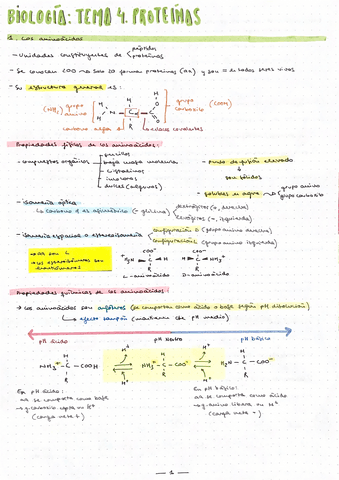 BIOLOGÍA: TEMA 4. PROTEÍNAS
1. Los aminoácidos
- Unidades constituyentes de péptidos
proteínas
- Se conocen 200 → solo 20 forman proteínas (aa) y son = en todos seres vivos
- Su estructura general es:
(NH₂) grupo amino
H
H N C C O
O H
R
grupo carboxilo (COOH)
carbono alfa
enlaces covalentes
Propiedades físicas de los aminoácidos:
- compuestos orgánicos
sencillos
baja masa molecular
cristalinos
incoloros
dulces (algunos)
- punto de fusión elevado
↓
son sólidos
- solubles en agua
grupo amino
grupo carboxilo
- isomería óptica
↳ carbono α es asimétrico (- glicina)
dextrógiros (+, derecha)
levógiros (-, izquierda)
- isomería espacial o estereoisomería
configuración D (grupo amino derecha)
configuración L (grupo amino izquierda)
→ aa son L
→ los estereoisómeros son enantiómeros
COO⁻ COO⁻
⁺H₃N C H H C NH₃⁺
R R
L-aminoácido D-aminoácido
Propiedades químicas de los aminoácidos:
→ Los aminoácidos son anfóteros (se comportan como ácido o base según pH disolución)
↳ efecto tampón (mantiene cte pH medio)
pH ácido pH neutro pH básico
H⁺ H⁺
H H H
NH₃⁺ - C - COOH NH₃⁺ - C - COO⁻ H₂N - C - COO⁻
R R R
H⁺ H⁺
En pH ácido:
aa se comporta como base
→ g. carboxilo capta un H⁺
(carga neta +)
En pH básico:
aa se comporta como ácido
→ g. amino libera un H⁺
(carga neta -)
— 1 —